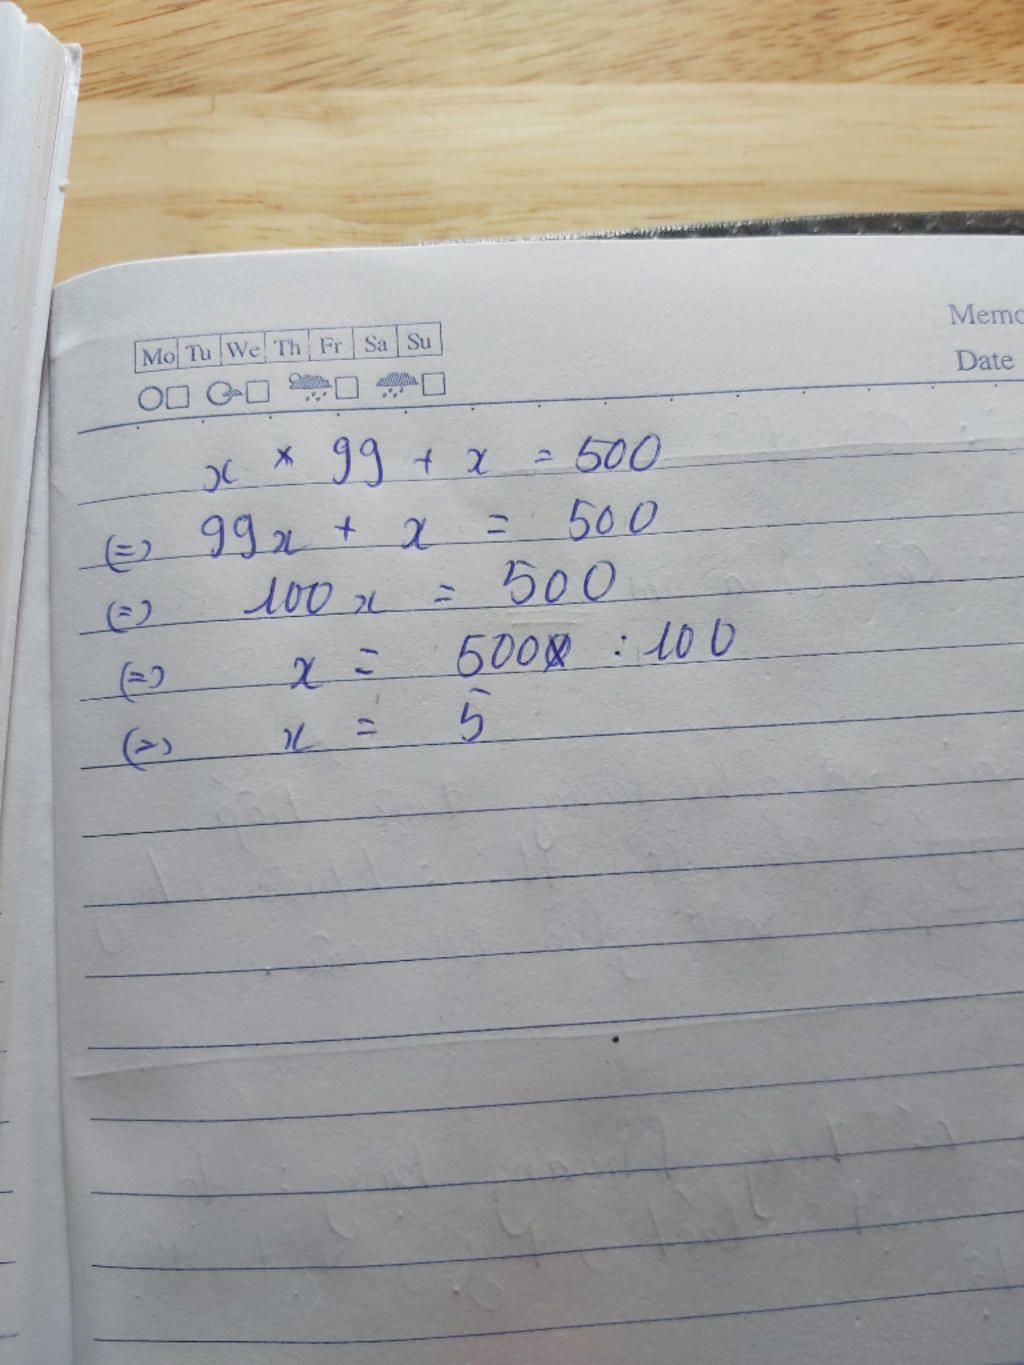 Memo
Date
Mo Tu We Th Fr Sa Su
x × 99 + x = 500
(=) 99x + x = 500
(=) 100x = 500
(=) x = 500 : 100
(=) x = 5